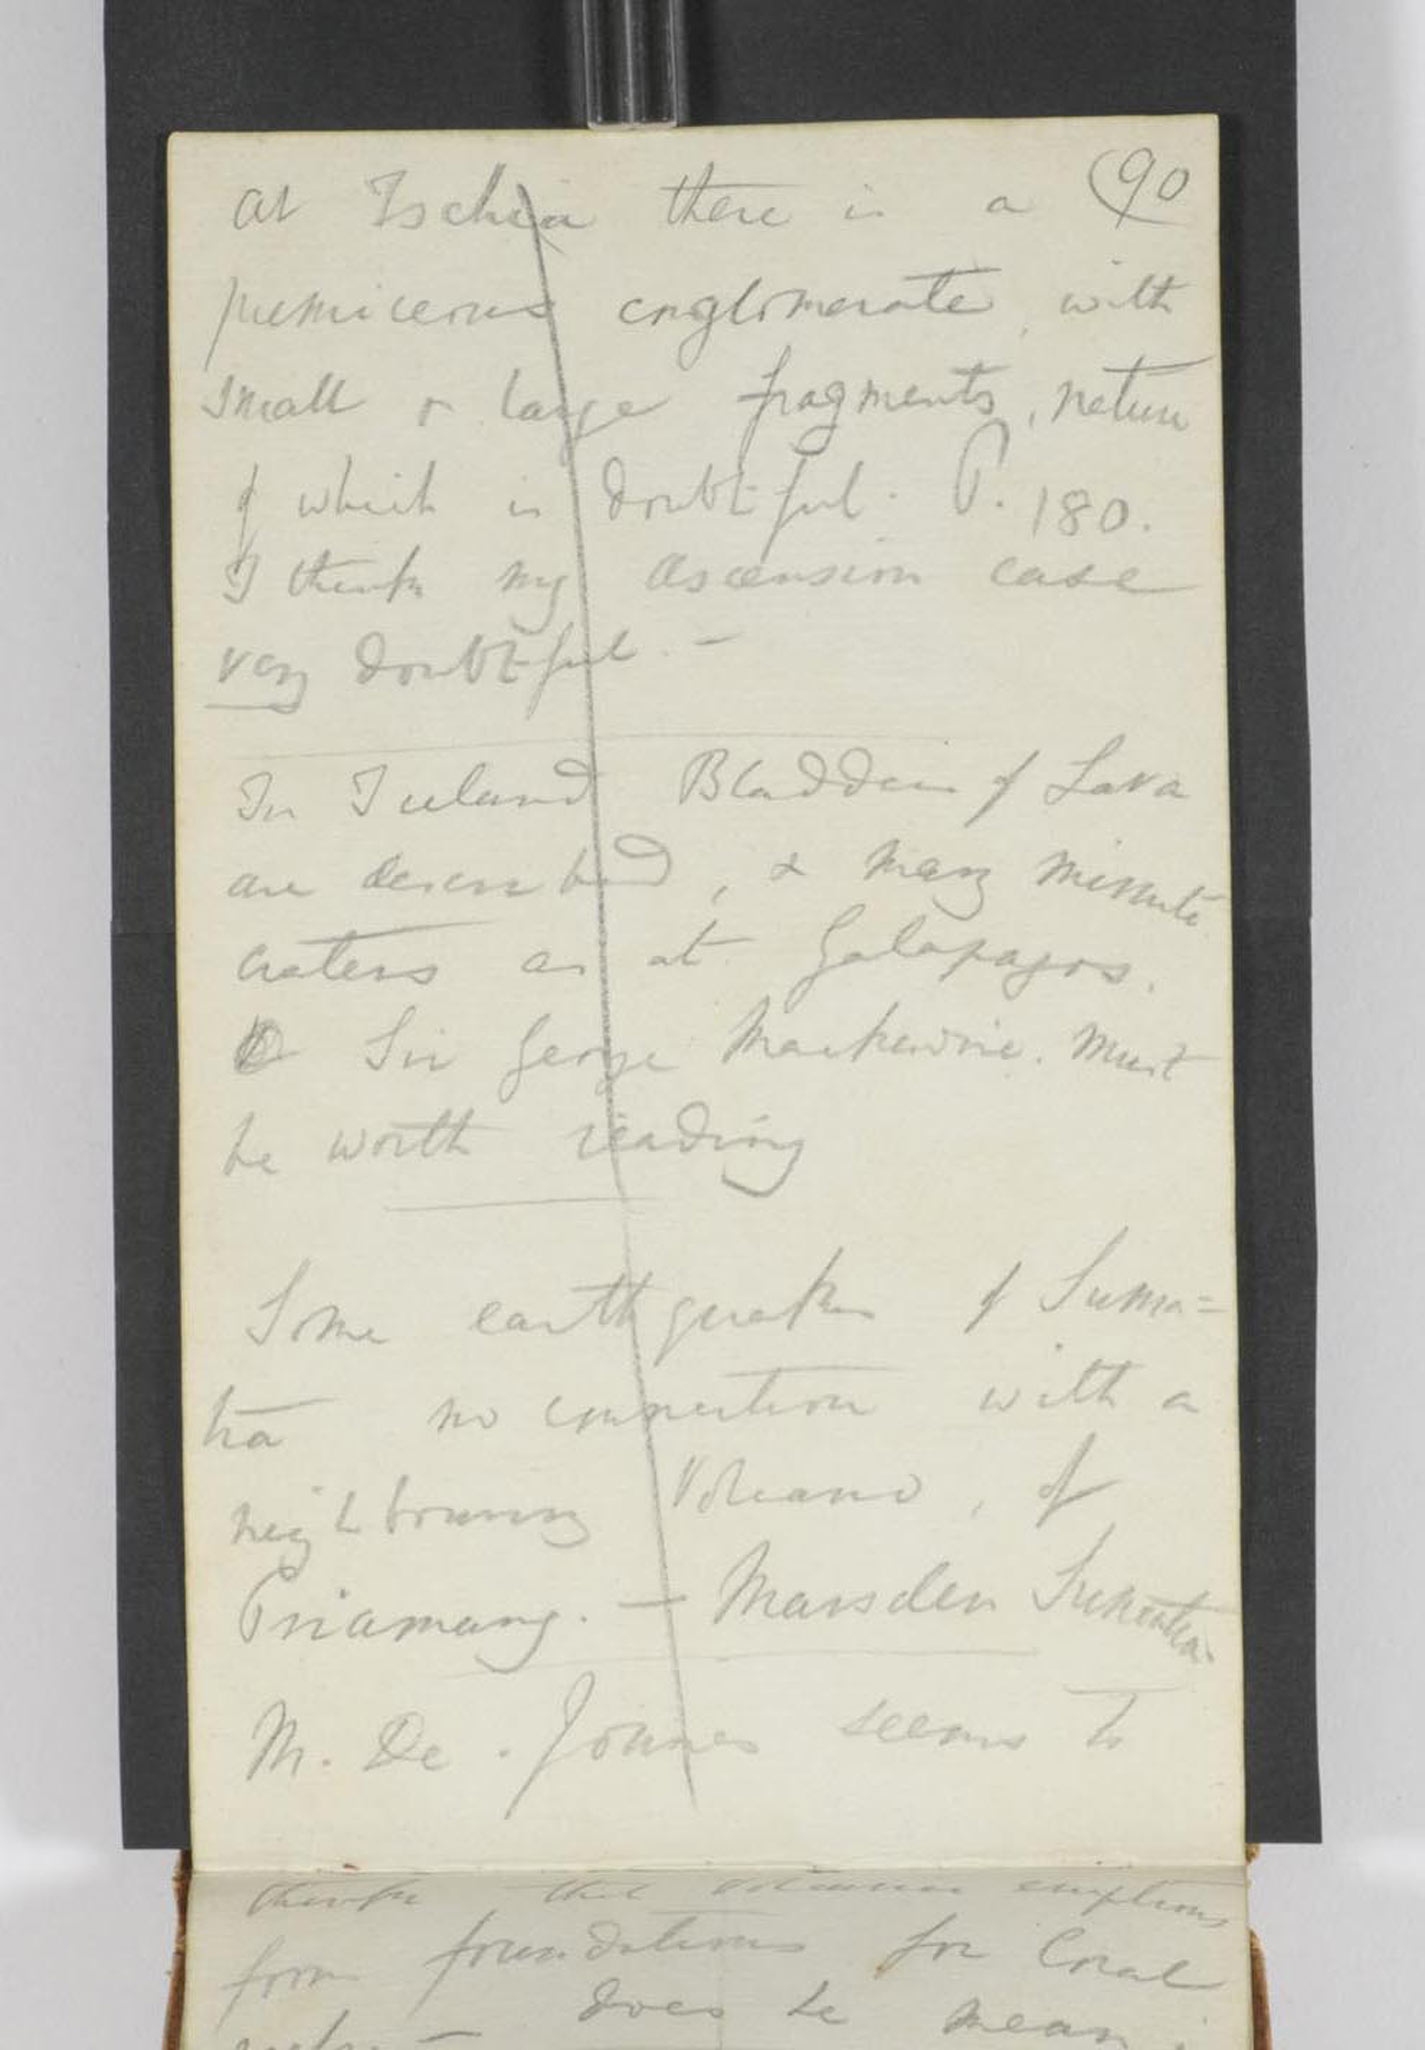 (90
at Ischia there is a
pumiceous conglomerate, with
small & large fragments, nature
of which is doubtful. P. 180.
I think my Ascension case
very doubtful. —
In Iceland Bladders of Lava
are described, & many minute
craters as at Galapagos.
Sir George Mackenzie. must
be worth reading
Some earthquakes of Suma=
tra no connection with a
neighbouring Volcano, of
Priamang. — Marsden Sumatra.
M. De. Jonnes seems to
think that volcanic eruptions
form foundations for Coral
reefs — does he mean